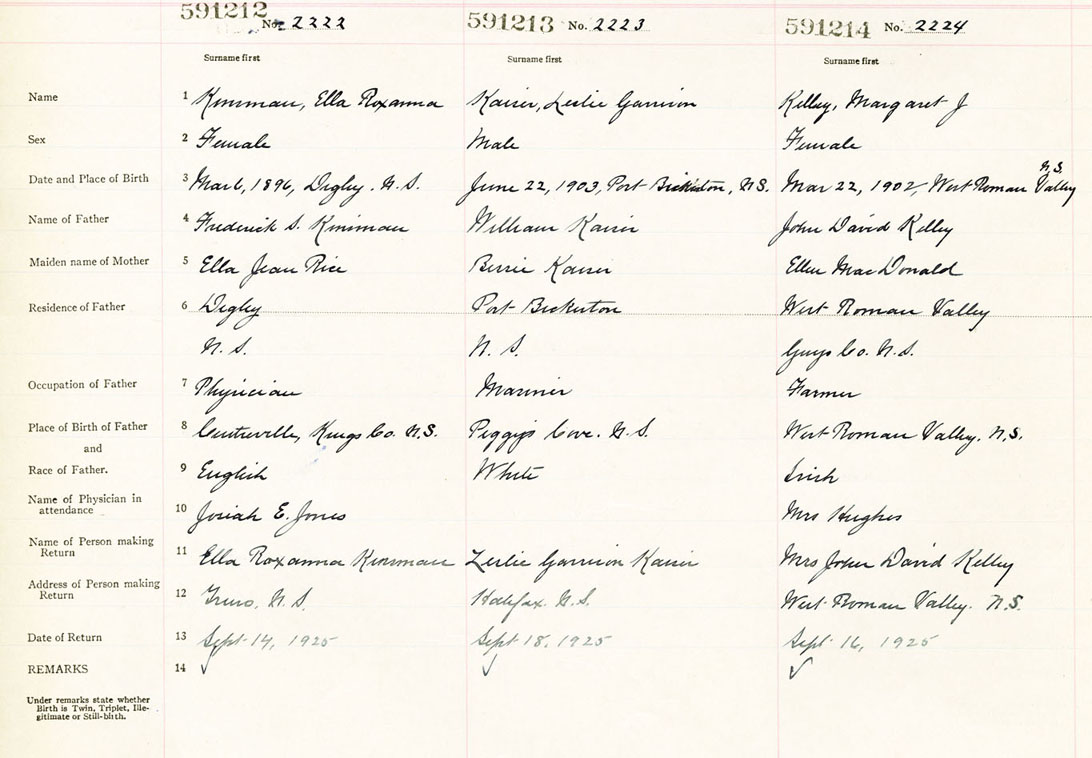 591212 No. 2222 591213 No. 2223 591214 No. 2224
Surname first Surname first Surname first
Name 1 Kinsman, Ella Roxanna Kaiser, Leslie Garrison Kelley, Margaret J
Sex 2 Female Male Female
N.S.
Date and Place of Birth 3 Mar 6, 1896, Digby. N.S. June 22, 1903, Port Bickerton, N.S. Mar 22, 1902, West Roman Valley
Name of Father 4 Frederick S. Kinsman William Kaiser John David Kelley
Maiden name of Mother 5 Ella Jean Rice Bessie Kaiser Ellen MacDonald
Residence of Father 6 Digby Port Bickerton West Roman Valley
N. S. N. S. Guys Co. N.S.
Occupation of Father 7 Physician Mariner Farmer
Place of Birth of Father 8 Centreville, Kings Co. N.S. Peggy's Cove. N.S. West Roman Valley. N.S.
and
Race of Father. 9 English White Irish
Name of Physician in
attendance 10 Josiah E. Jones Mrs Hughes
Name of Person making
Return 11 Ella Roxanna Kinsman Leslie Garrison Kaiser Mrs John David Kelley
Address of Person making
Return 12 Truro. N.S. Halifax. N.S. West Roman Valley. N.S.
Date of Return 13 Sept 14, 1925 Sept 18, 1925 Sept 16, 1925
REMARKS 14
Under remarks state whether
Birth is Twin, Triplet, Ille-
gitimate or Still-birth.